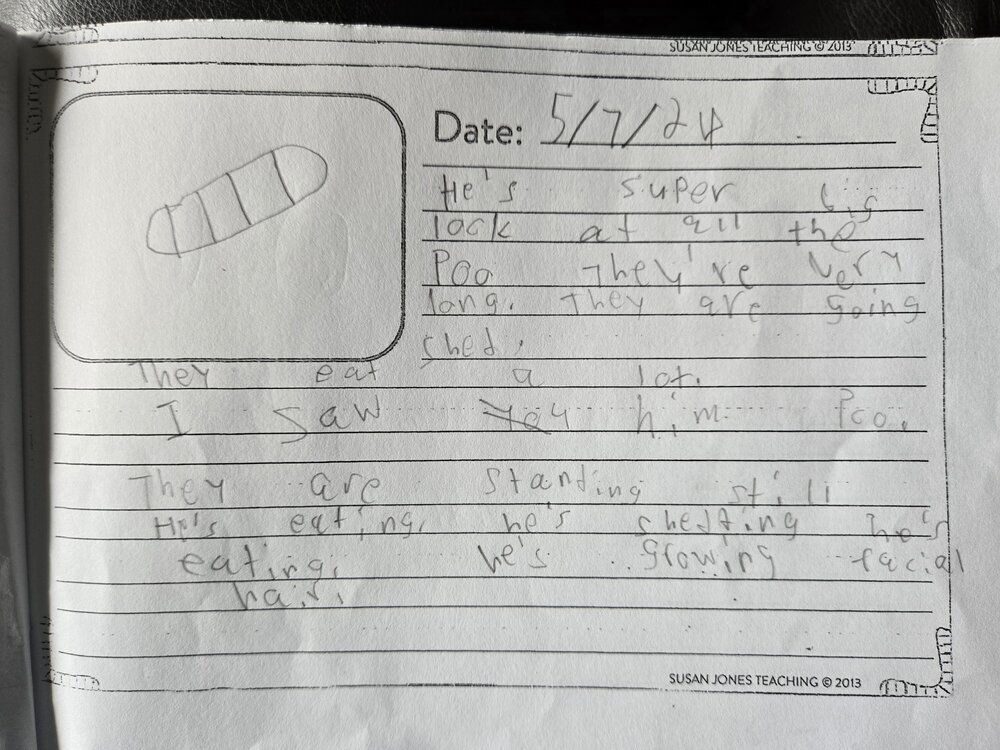 SUSAN JONES TEACHING © 2013
Date: 5/7/24
He's super big
look at all the
Poo They're very
long. They are going
shed.
They eat a lot.
I saw him Poo.
They are standing still
He's eating. he's shedding he's
eating. he's growing facial
hair.
SUSAN JONES TEACHING © 2013